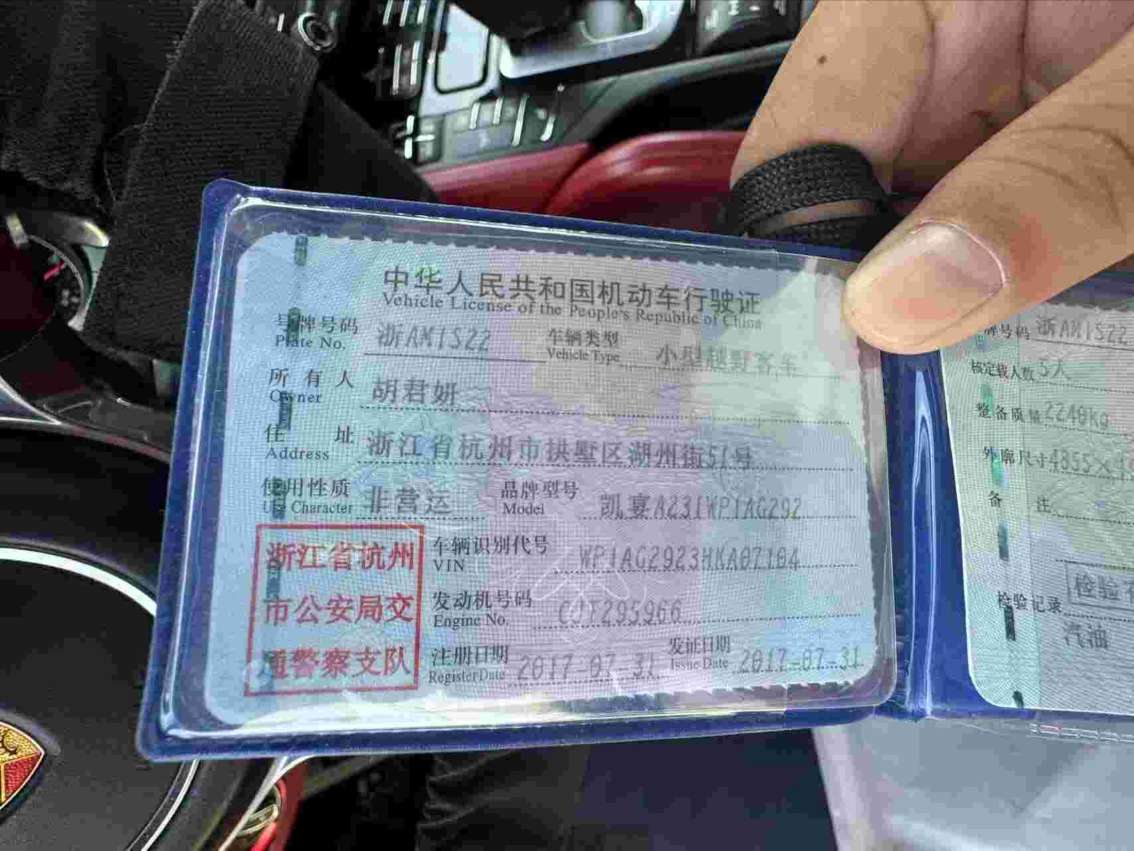 中华人民共和国机动车行驶证
Vehicle License of the People's Republic of China
号牌号码 浙AM1S22 车辆类型 小型越野客车
Plate No. Vehicle Type
所有人 胡君妍
Owner
住址 浙江省杭州市拱墅区湖州街51号
Address
使用性质 非营运 品牌型号 凯宴A231WP1AG292
Use Character Model
浙江省杭州
市公安局交
通警察支队
车辆识别代号 WP1AG2923HKA07184
VIN
发动机号码 CJT295966
Engine No.
注册日期 2017-07-31 发证日期 2017-07-31
Register Date Issue Date
号牌号码 浙AM1S22
核定载人数 5人
整备质量 2240kg
外廓尺寸 4855×
备注
检验记录
检验
汽油